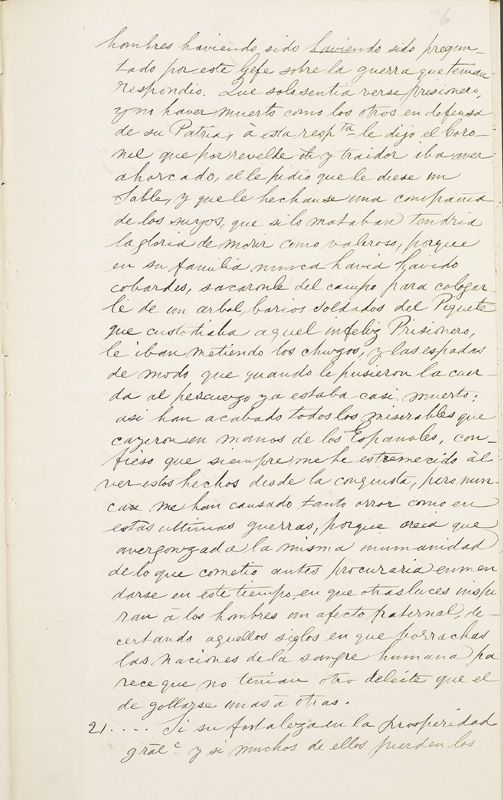 76
hombres haviendo sido haviendo sido pregun-
tado por este Gefe sobre la guerra que tenian
respondio. Que solo sentia verse prisionero,
y no haver muerto como los otros en defensa
de su Patria, a esta resp.ta le dijo el Coro-
nel que por revelde y traidor iba aver
ahorcado, el le pidio que le diese un
Sable, y que le hechause una compañia
de los suyos, que si lo mataban tendria
la gloria de morir como valeroso, porque
en su familia nunca havia havido
cobardes, sacaronle del campo para colgar-
le de un arbol, barios soldados del Piquete
que custodiaba aquel infeliz Prisionero,
le iban metiendo los chuzos, y las espadas
de modo que quando le pusieron la cuer-
da al pescuezo ya estaba casi muerto;
asi han acabado todos los miserables que
cayeron en manos de los Españoles, con-
fieso que siempre me he estremecido al
ver estos hechos desde la conquista, pero nun-
cas me han causado tanto orror como en
estas ultimas guerras, porque creia que
avergonzada la misma inumanidad
de lo que cometio antes procuraria enmen
darse en este tiempo, en que otras luces inspi
ran á los hombres un afecto fraternal, de-
certando aquellos siglos en que borrachas
las Naciones de la sangre humana pa
rece que no tenian otro deleite que el
de gollarse unas á otras.
21.... Si su fortaleza en la prosperidad
gral.e y si muchos de ellos pierden los